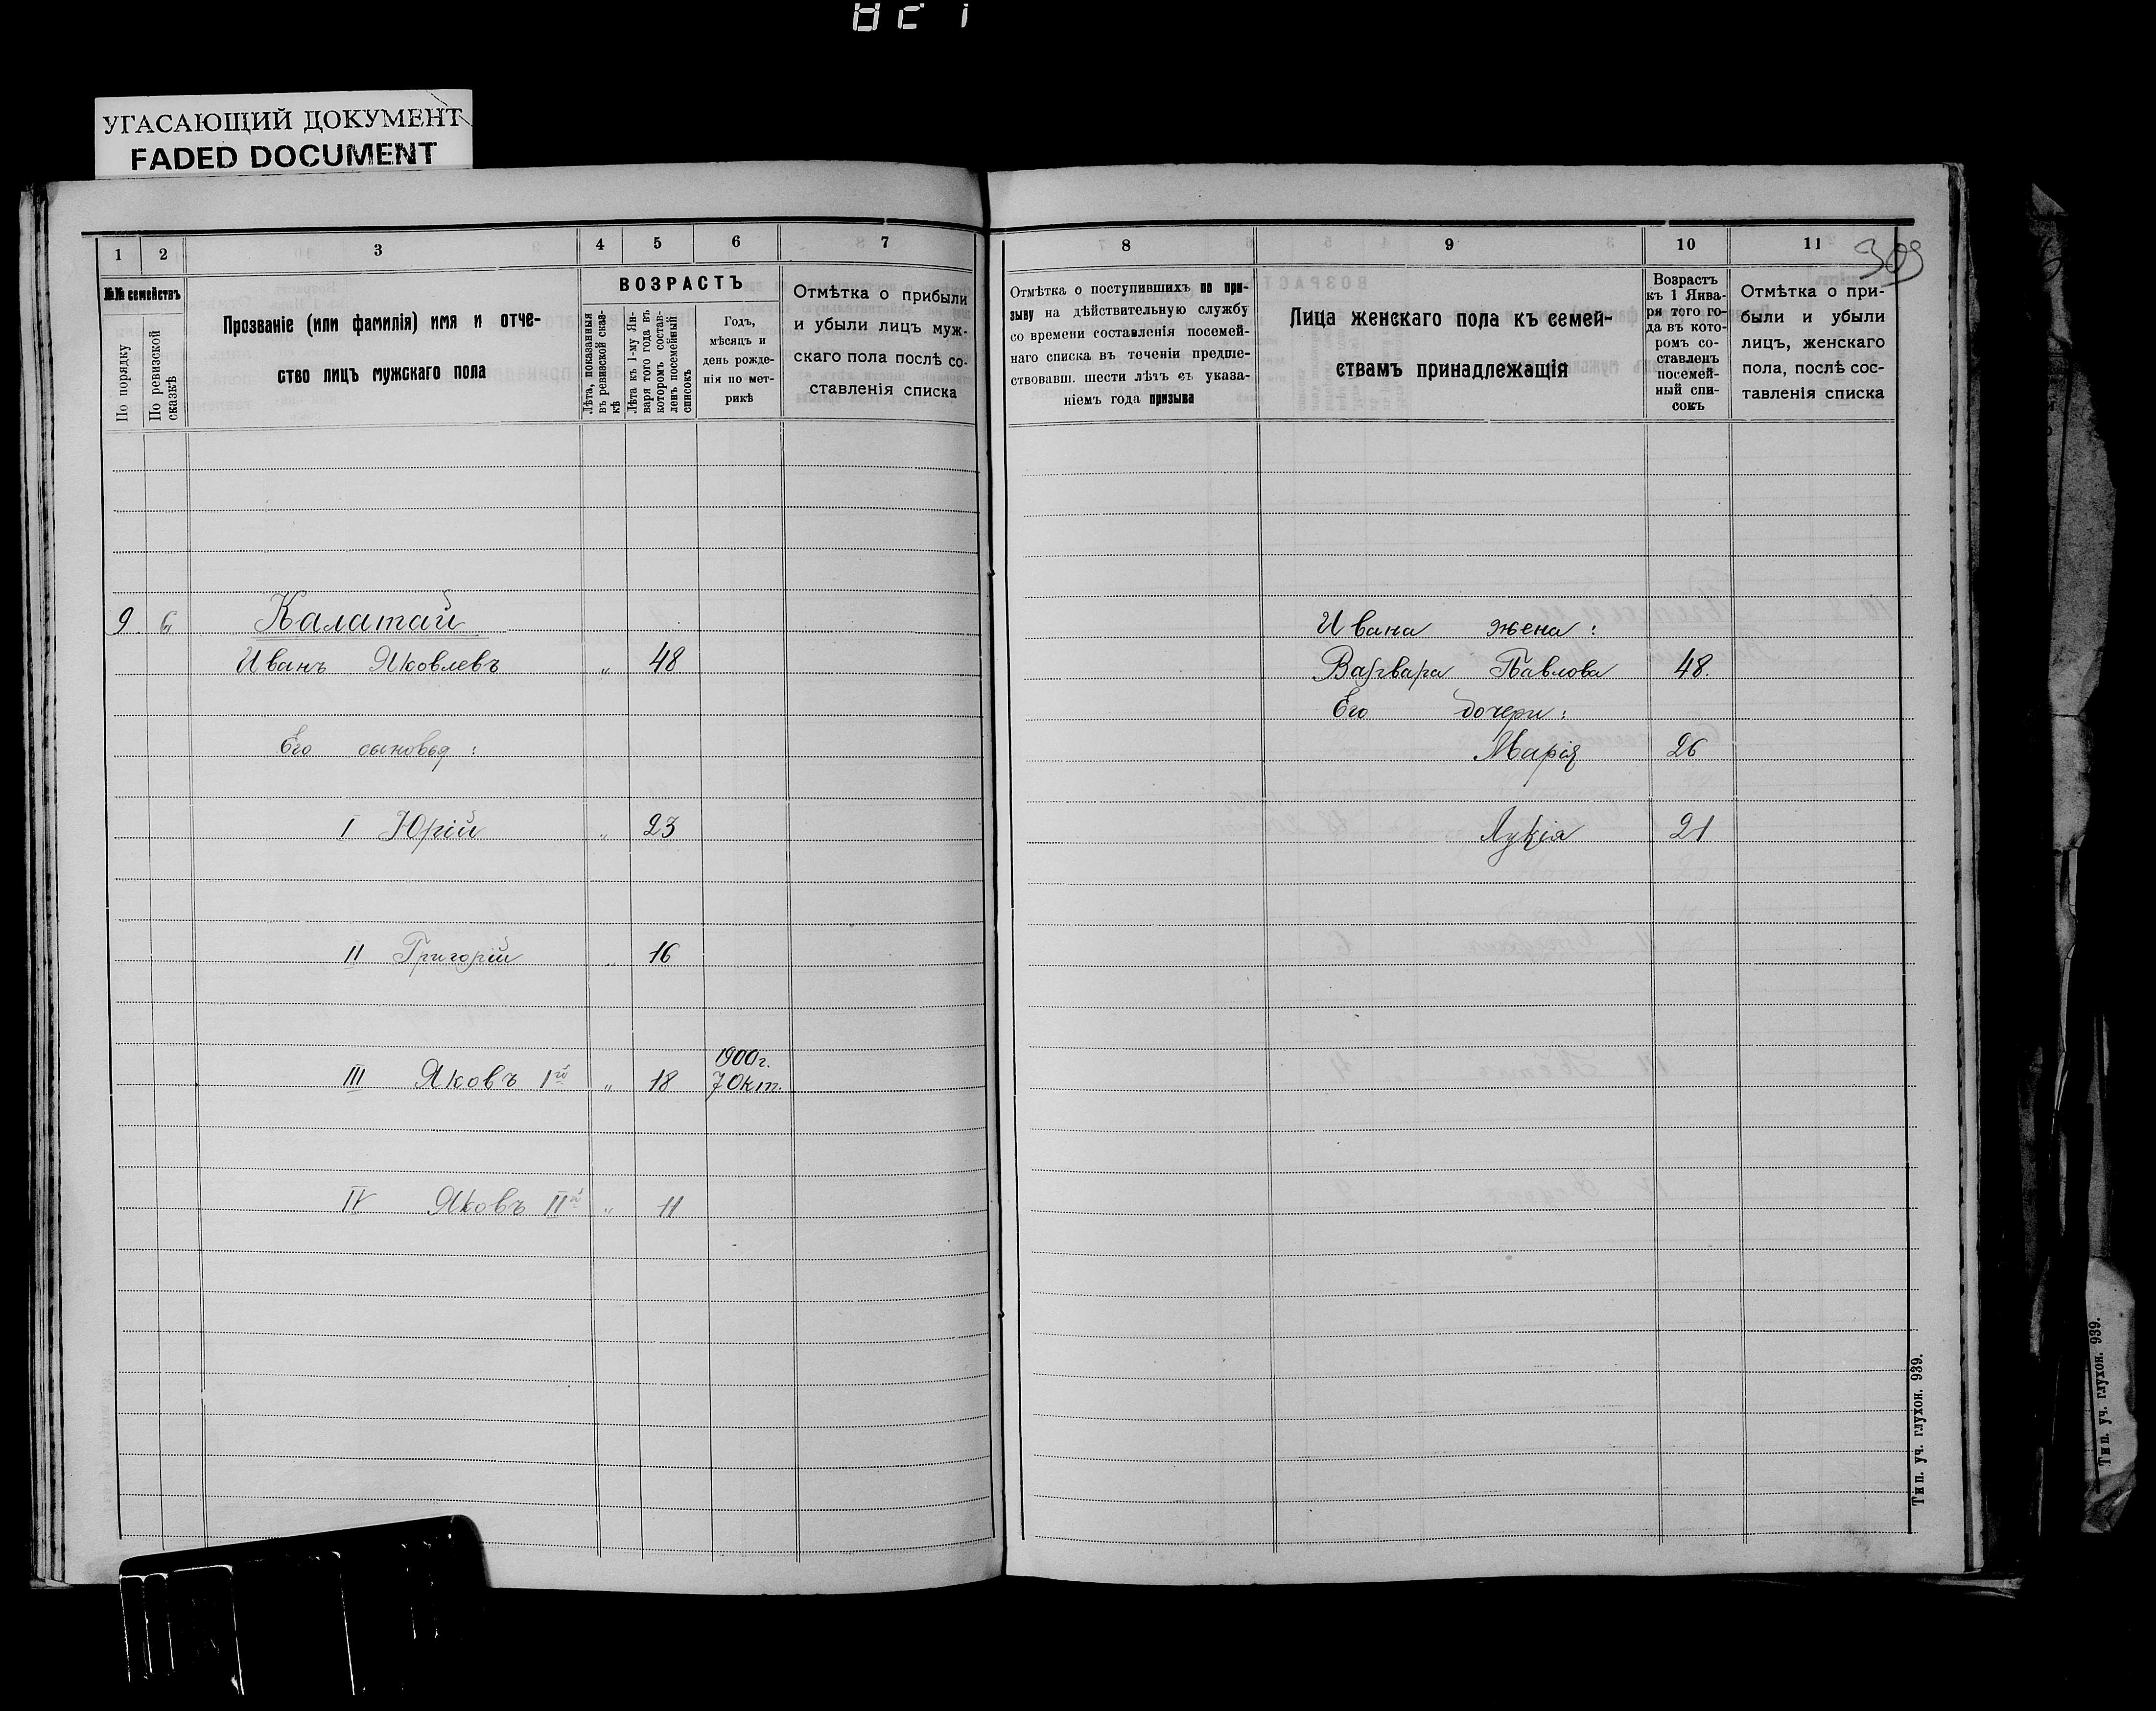 УГАСАЮЩИЙ ДОКУМЕНТ
FADED DOCUMENT
1 2 3 4 5 6 7
№№ семействъ
По порядку
По ревизской сказкѣ
Прозваніе (или фамилія) имя и отче-
ство лицъ мужскаго пола
ВОЗРАСТЪ
Лѣта, показанныя
въ ревизской сказ-
кѣ
Лѣта къ 1-му Ян-
варя того года въ
которомъ состав-
ленъ посемейный
списокъ
Годъ,
мѣсяцъ и
день рожде-
нія по мет-
рикѣ
Отмѣтка о прибыли
и убыли лицъ муж-
скаго пола послѣ со-
ставленія списка
9 6 Калатай
Иванъ Яковлевъ „ 48
Его сыновья :
I Юрій „ 23
II Григорій „ 16
1900г.
III Яковъ Iй „ 18 7 Окт.
IV Яковъ IIй „ 11
8 9 10 11
309
Отмѣтка о поступившихъ по при-
зыву на дѣйствительную службу
со времени составленія посемей-
наго списка въ теченіи предше-
ствовавш. шести лѣтъ съ указа-
ніемъ года призыва
Лица женскаго пола къ семей-
ствамъ принадлежащія
Возрастъ
къ 1 Янва-
ря того го-
да въ кото-
ромъ со-
ставленъ
посемей-
ный спи-
сокъ
Отмѣтка о при-
были и убыли
лицъ, женскаго
пола, послѣ сос-
тавленія списка
Ивана жена :
Варвара Павлова 48.
Его дочери :
Марія 26
Лукія 21
Тип. уч. глухон. 939.
Тип. уч. глухон. 939.